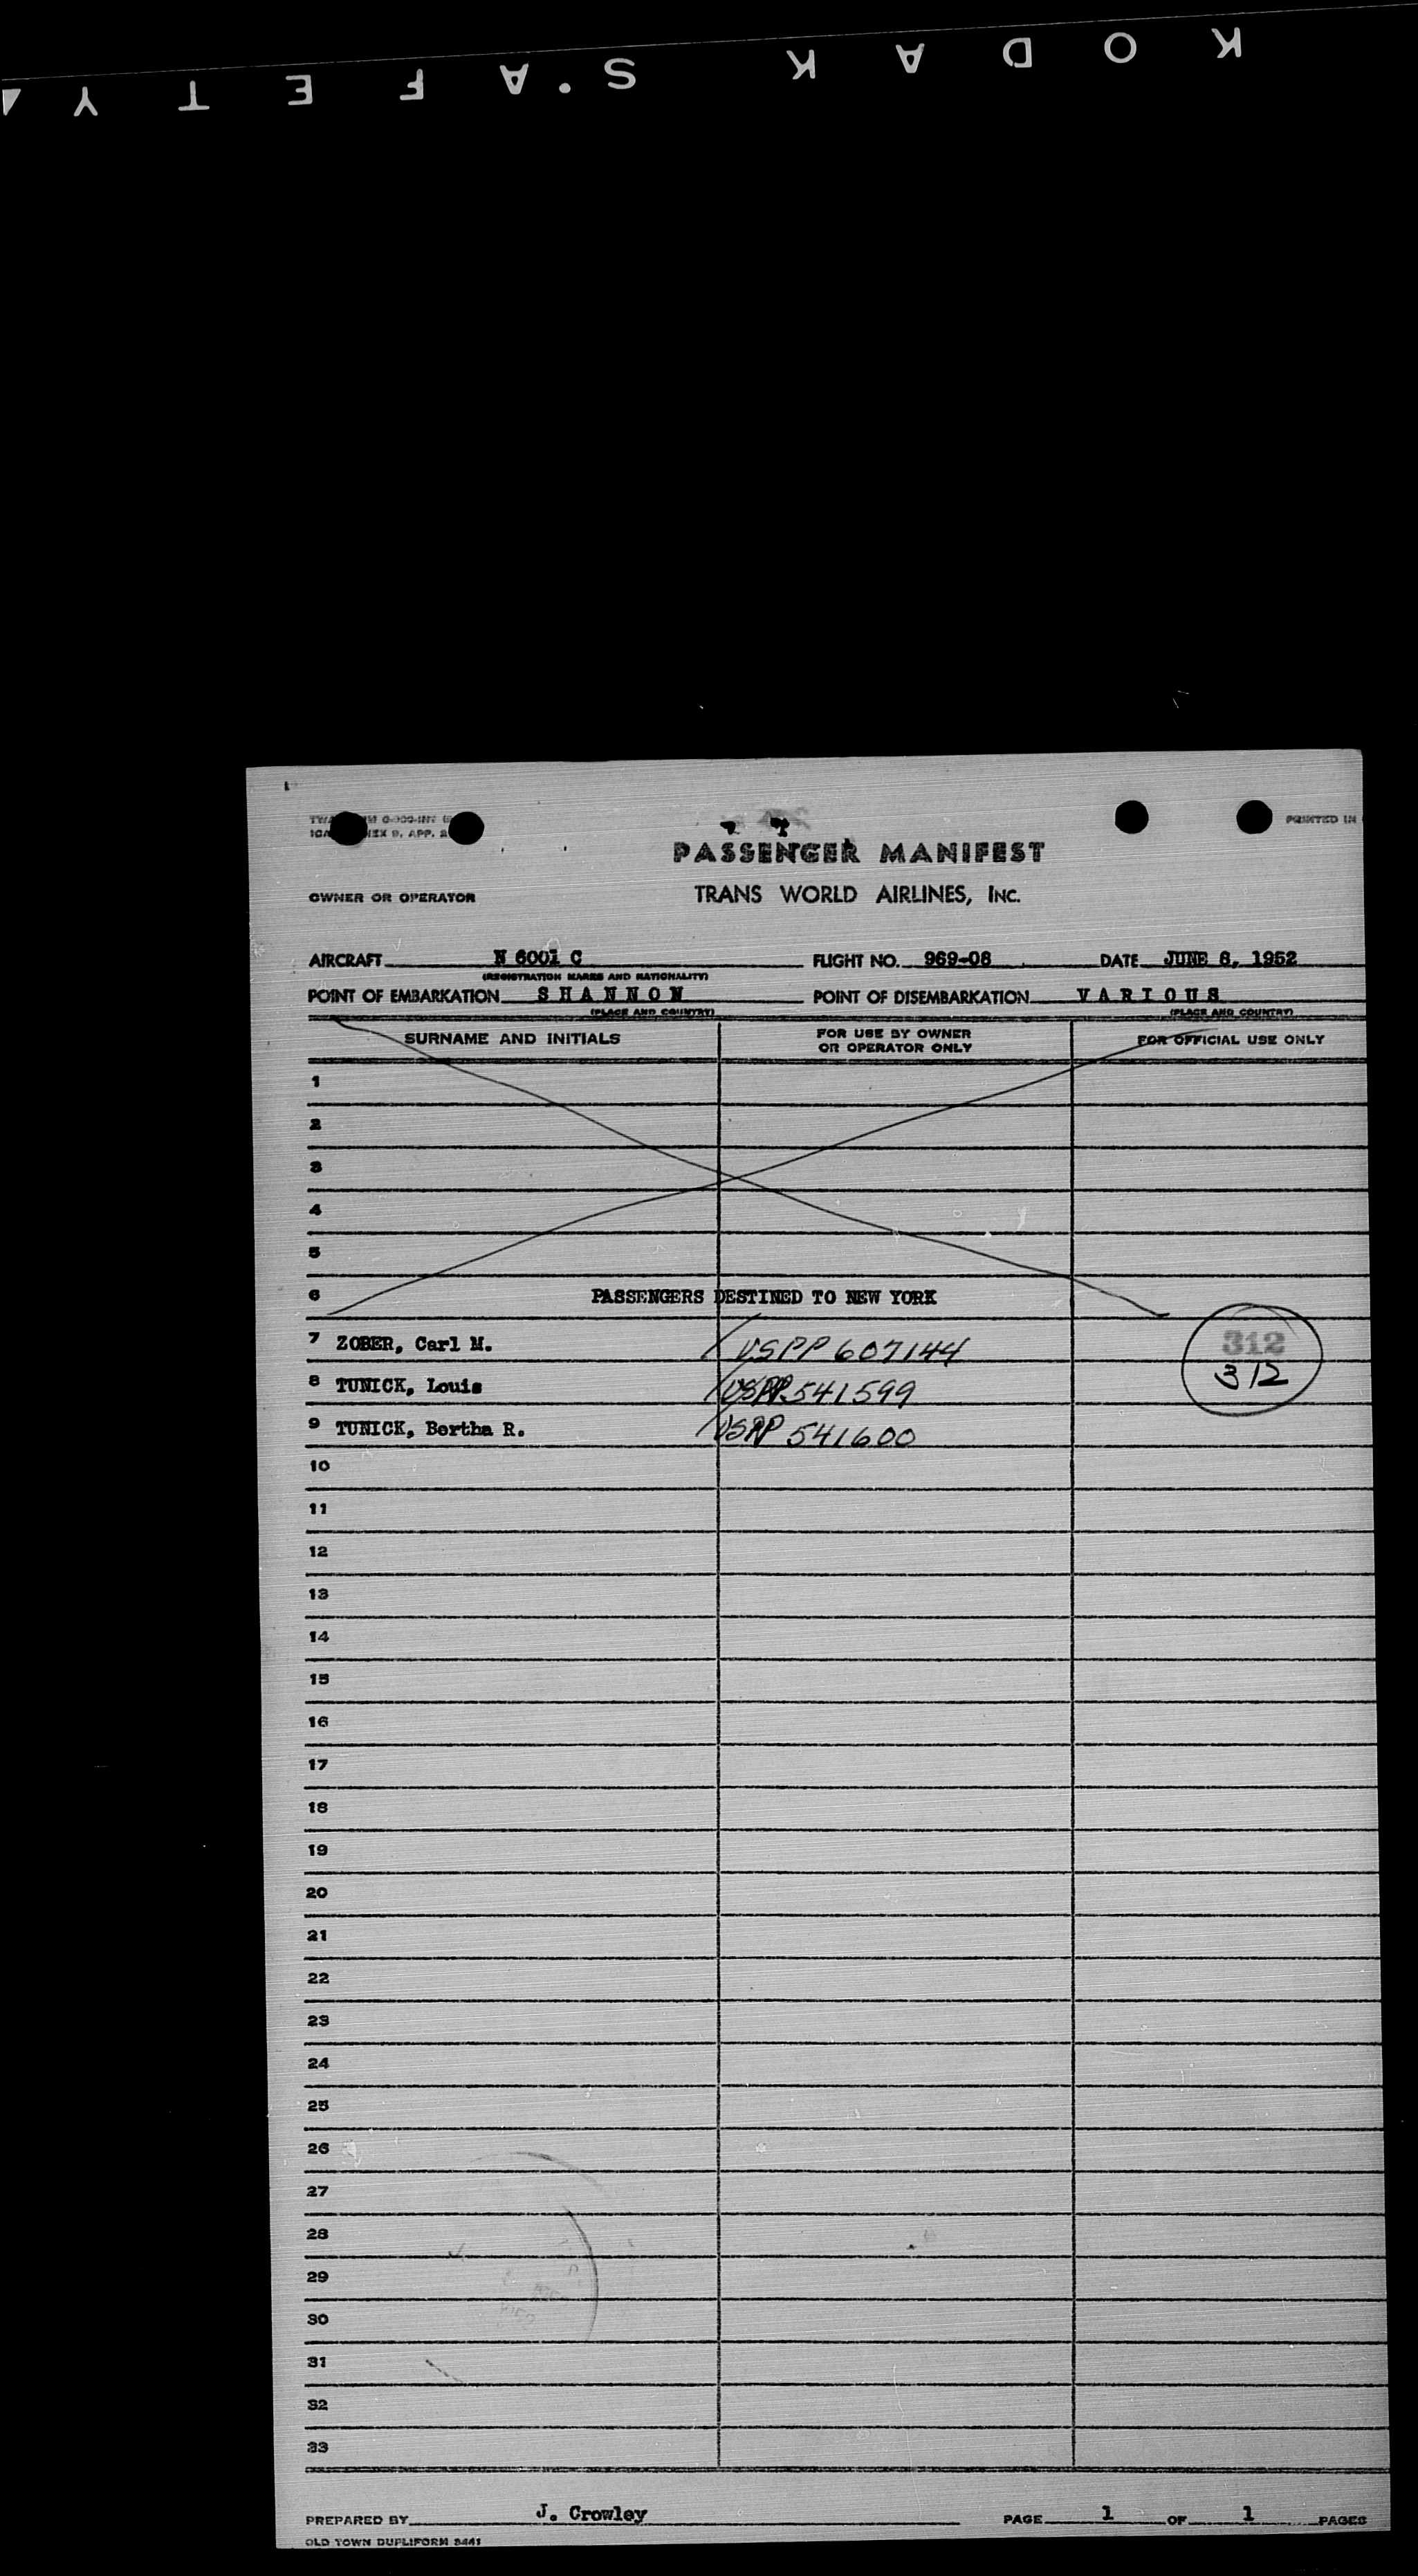 KODAK SAFETY
PASSENGER MANIFEST
OWNER OR OPERATOR TRANS WORLD AIRLINES, INC.
AIRCRAFT N 6001 C FLIGHT NO. 969-08 DATE JUNE 8, 1952
(REGISTRATION MARKS AND NATIONALITY)
POINT OF EMBARKATION SHANNON POINT OF DISEMBARKATION VARIOUS
(PLACE AND COUNTRY) (PLACE AND COUNTRY)
SURNAME AND INITIALS FOR USE BY OWNER OR OPERATOR ONLY FOR OFFICIAL USE ONLY
1
2
3
4
5
6 PASSENGERS DESTINED TO NEW YORK
7 ZOBER, Carl M. USPP 607144 312
8 TUNICK, Louis USPP 541599 312
9 TUNICK, Bertha R. USPP 541600
10
11
12
13
14
15
16
17
18
19
20
21
22
23
24
25
26
27
28
29
30
31
32
33
PREPARED BY J. Crowley PAGE 1 OF 1 PAGES
OLD TOWN DUPLIFORM 8441